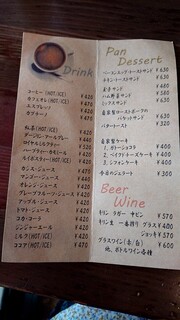 Drink
コーヒー(HOT/ICE) ¥420
カフェオレ(HOT/ICE) ¥420
エスプレッソ ¥420
カプチーノ ¥470
紅茶(HOT/ICE)
ダージリン・アールグレー ¥420
ロイヤルミルクティー ¥420
ハーブティー・カモミール ¥420
ルイボスティー(HOT/ICE) ¥420
カシス・ジュース ¥420
マンゴー・ジュース ¥420
オレンジ・ジュース ¥420
グレープフルーツ・ジュース ¥420
アップル・ジュース ¥420
トマト・ジュース ¥420
コカ・コーラ ¥420
ジンジャーエール ¥420
ミルク(HOT/ICE) ¥420
ココア(HOT/ICE) ¥470
Pan
Dessert
ベーコンエッグ・トーストサンド ¥630
チキン・トーストサンド ¥630
玉子サンド ¥450
ハム野菜サンド ¥580
ミックスサンド ¥630
自家製ローストポークの
バケットサンド ¥630
バタートースト ¥320
自家製ケーキ
1. ガトーショコラ ¥420
2. ベイクドチーズケーキ ¥420
3. シフォンケーキ ¥420
今日のジェラート ¥380
Beer
Wine
キリン ラガー 中ビン ¥570
キリン生 一番搾り グラス ¥400
ジョッキ ¥570
グラスワイン(赤/白) ¥600
他、ボトルワイン各種